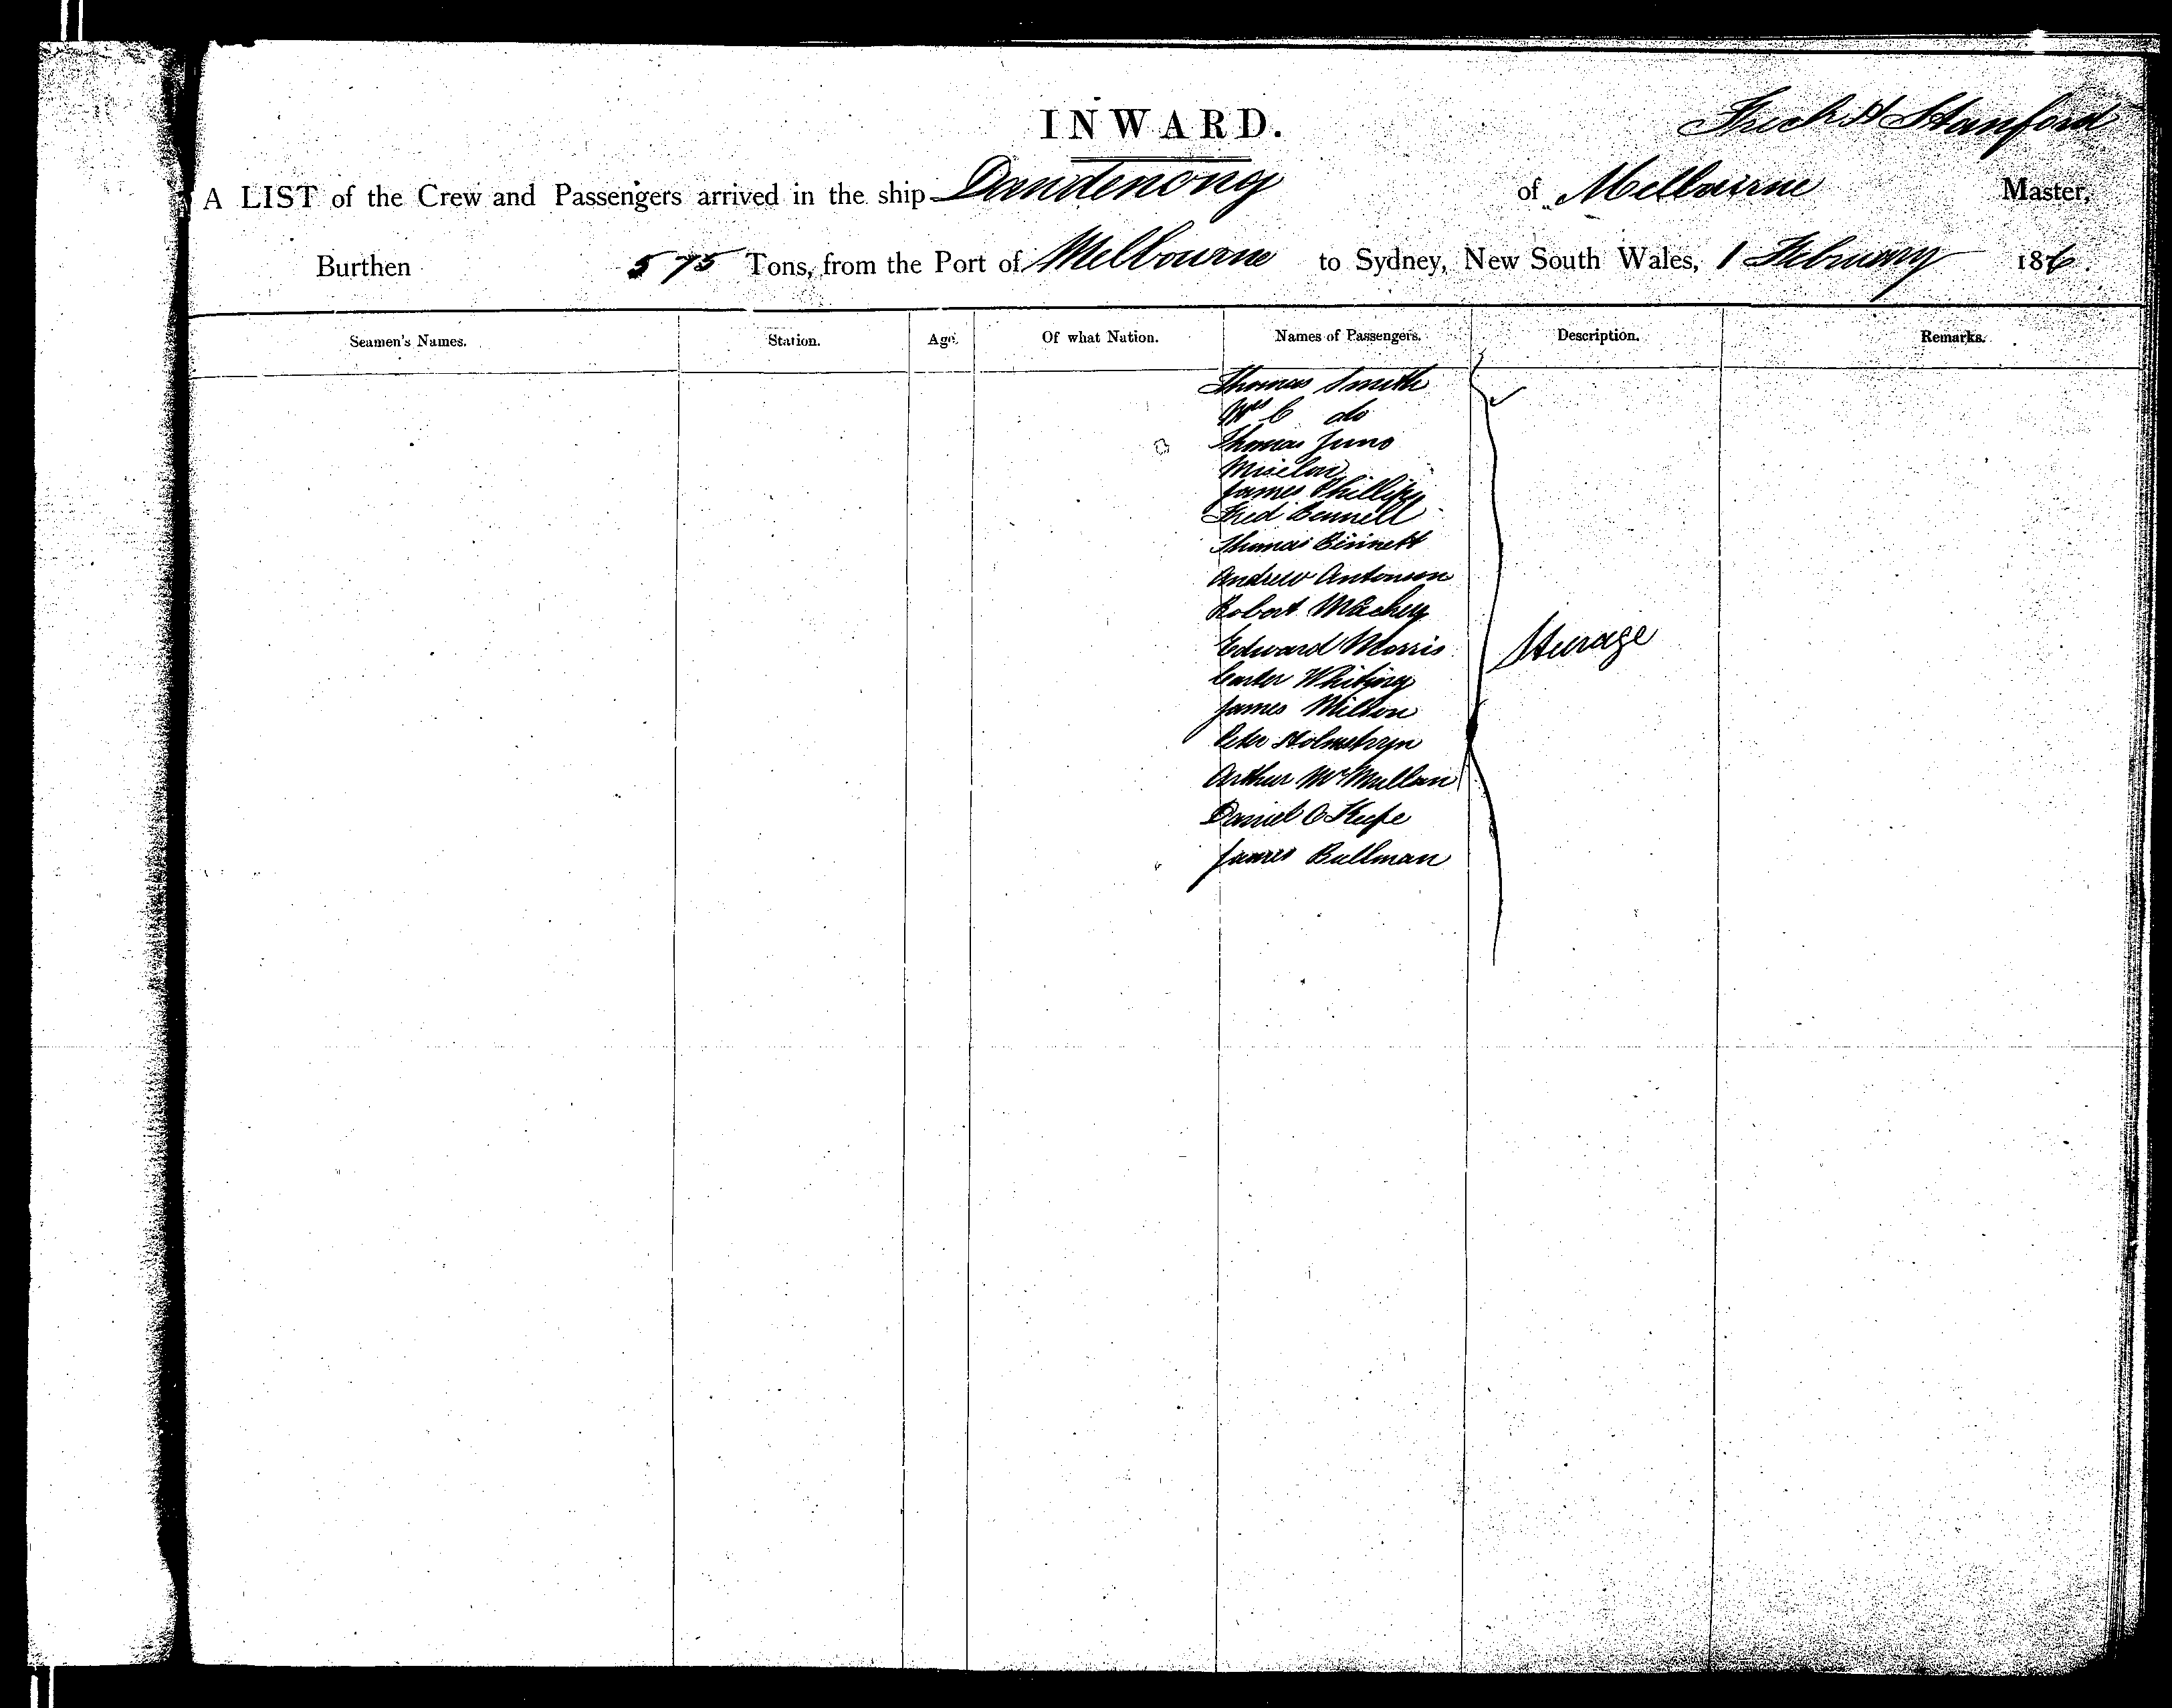 INWARD.
Fredk H Stanford
A LIST of the Crew and Passengers arrived in the ship Dandenong of Melbourne Master,
Burthen 575 Tons, from the Port of Melbourne to Sydney, New South Wales, 1 February 186
Seamen's Names. Station. Age. Of what Nation. Names of Passengers. Description. Remarks.
Thomas Smith
Mrs C do
Thomas Juno
James Phillips
Fred Bennell
Thomas Binnett
Andrew Antonson
Robert Mackey
Edward Morris
Steerage
Carter Whiting
James Wilson
Peter Holmstrym
Arthur McMullan
Daniel O Keefe
James Bullman